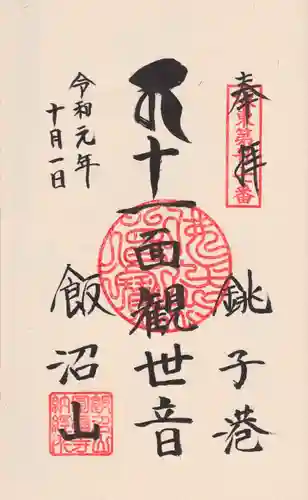 奉拝
東第
番
銚子港
十一面観世音
令和元年
十月一日
飯沼山